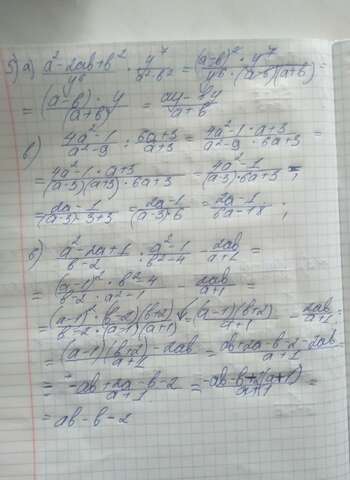 5) а) a² - 2ab + b² / y⁶ · y⁷ / a² - b² = (a-b)² · y⁷ / y⁶ · (a-b)(a+b) =
= (a-b) · y / (a+b) =
б) 4a² - 1 / a² - 9 : 6a+3 / a+3 = 4a² - 1 · a+3 / a² - 9 · 6a+3 =
= 4a² - 1 · a+3 / (a-3)(a+3) · 6a+3 = 4a² - 1 / (a-3) · 6a+3 =
= 2a - 1 / (a-3) · 3 = 2a-1 / = 2a-1 / ;
в) a² - 2a + 1 / b - 2 : a² - 1 / b² - 4 - 2ab / =
= (a-1)² · b² - 4 / b - 2 · a² - 1 - 2ab / a+1 =
= (a-1)² · (b-2)(b+2) / b-2 · (a-1)(a+1) = (a-1)(b+2) / a+1 - 2ab / =
= (a-1)(b+2) - 2ab / = ab + 2a - b - 2 - 2ab / a+1 =
= -ab + 2a - b - 2 / a+1 =
= ab - b - 2